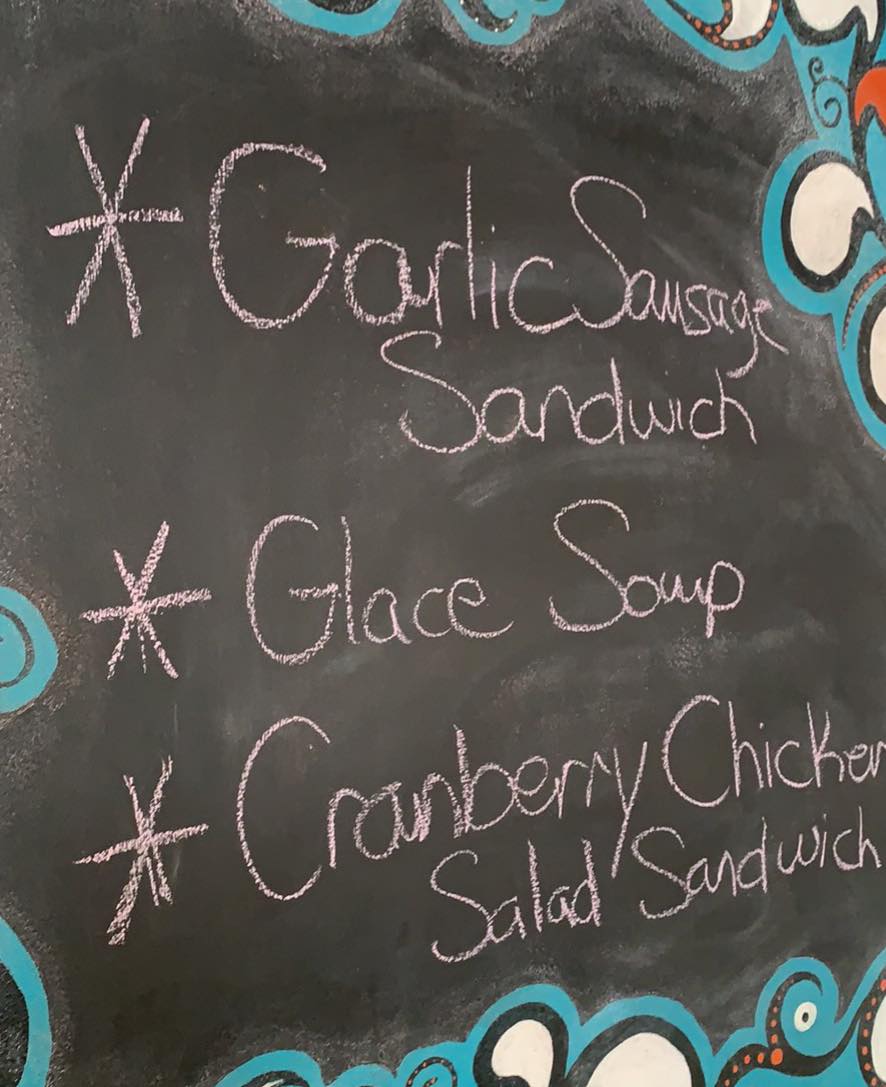 * Garlic Sausage
Sandwich
* Glace Soup
* Cranberry Chicken
Salad Sandwich